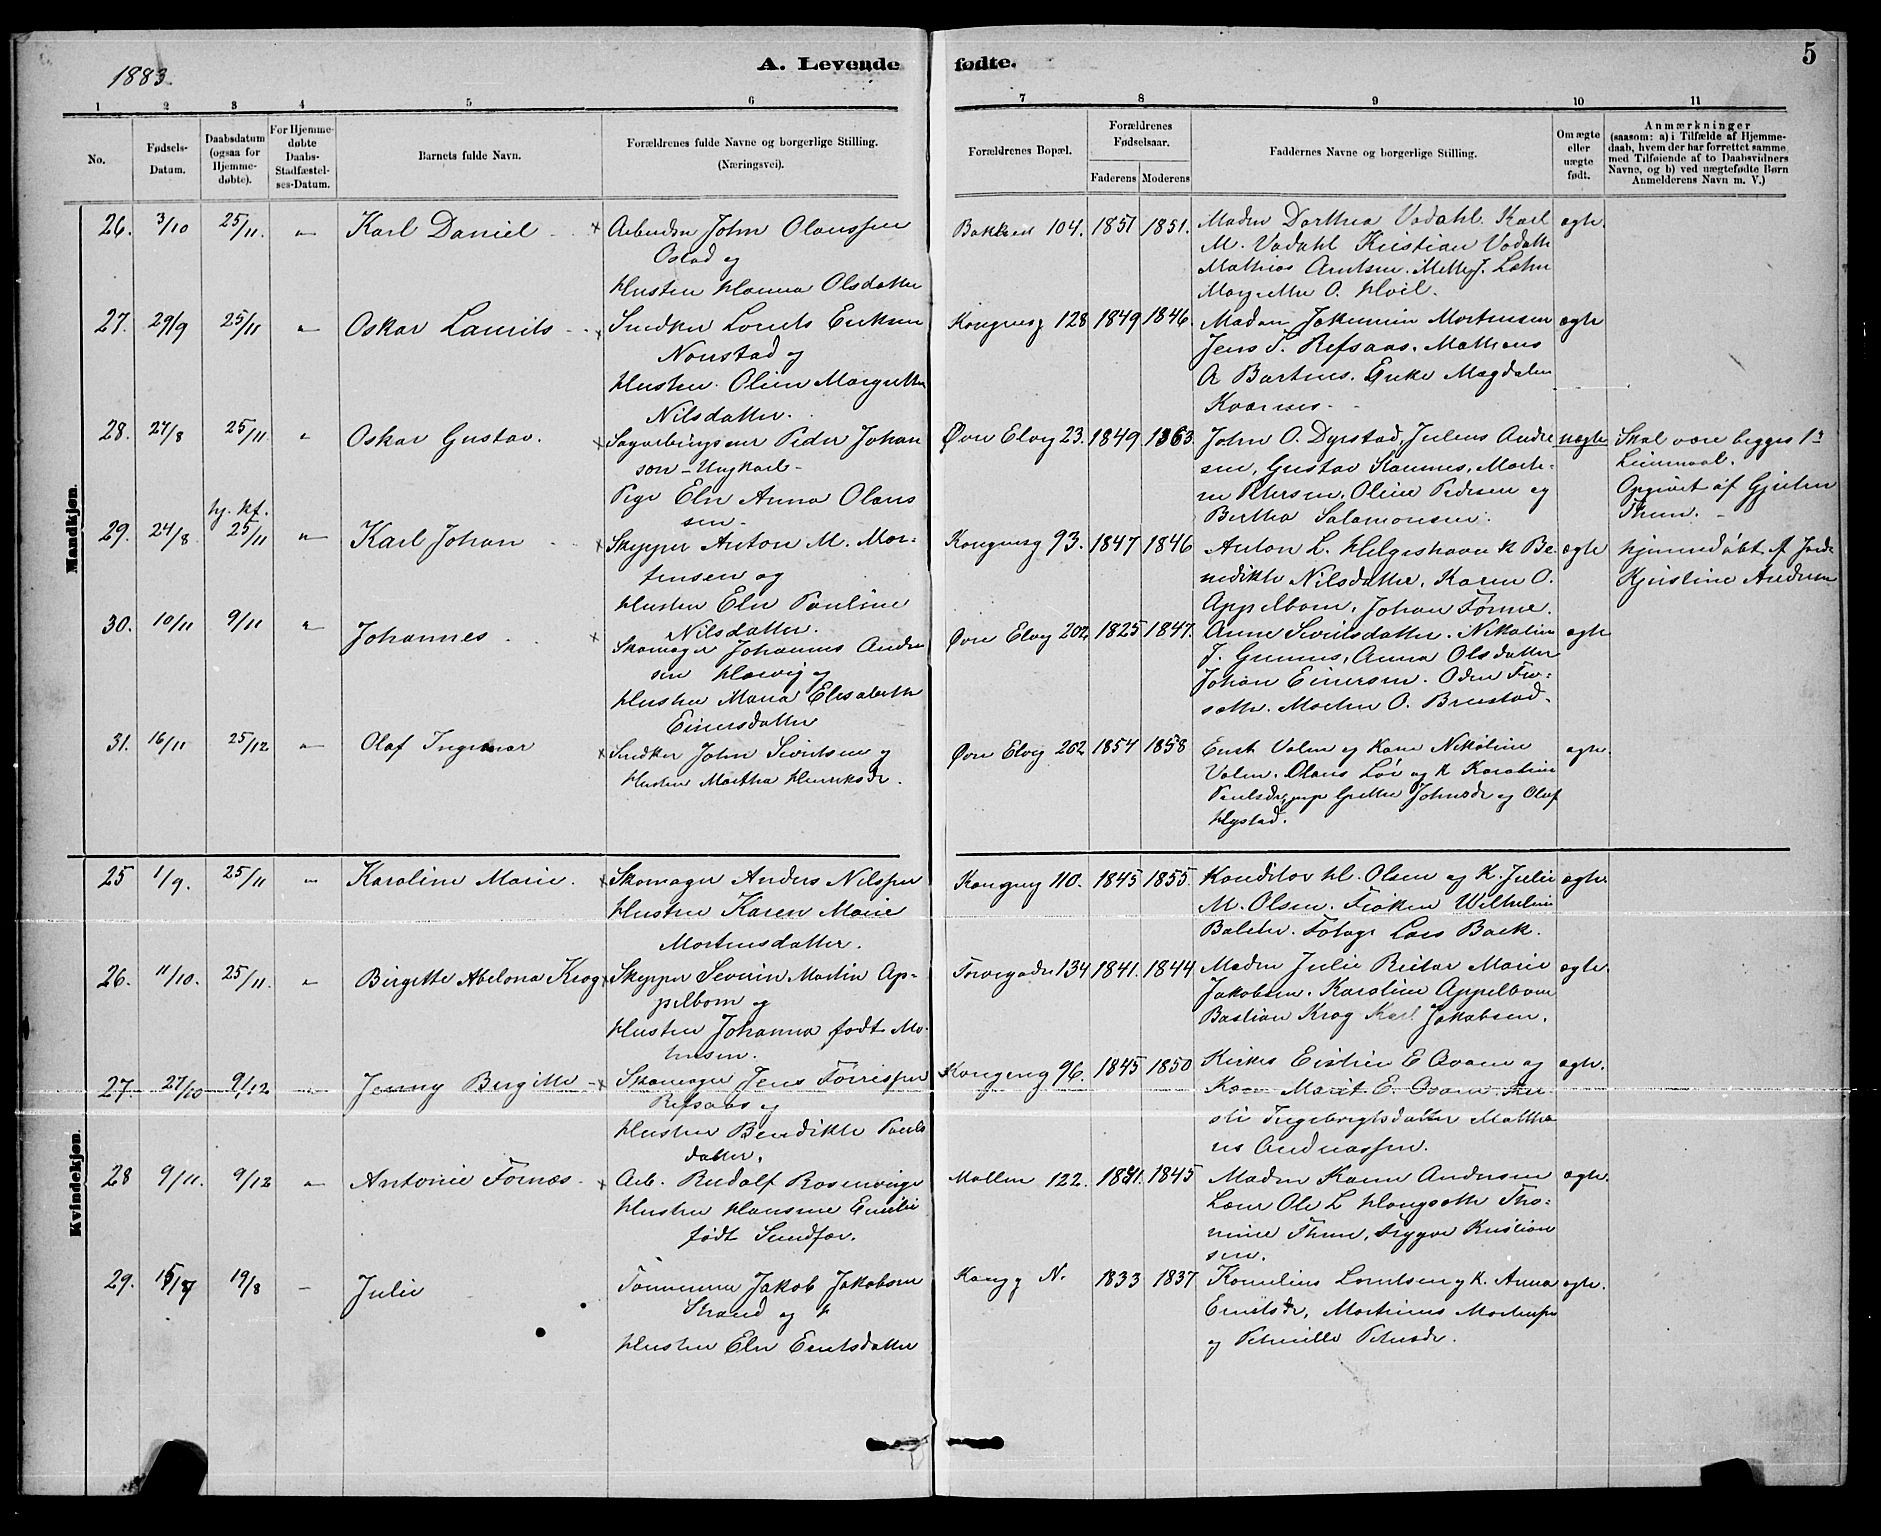 1883.
A. Levende fødte.
5
1 2 3 4 5 6 7 8 9 10 11
No.
Fødsels-Datum.
Daabsdatum (ogsaa for Hjemme-døbte).
For Hjemme-døbte Daabs-Stadfæstel-ses-Datum.
Barnets fulde Navn.
Forældrenes fulde Navne og borgerlige Stilling. (Næringsvei).
Forældrenes Bopæl.
Forældrenes Fødselsaar.
Faderens Moderens
Faddernes Navne og borgerlige Stilling.
Om ægte eller uægte født.
Anmærkninger (saasom: a) i Tilfælde af Hjemme-daab, hvem der har forrettet samme, med Tilføiende af to Daabsvidners Navne, og b) ved uægtefødte Børn Anmelderens Navn m. V.)
Mandkjøn.
26. 3/10 25/11. " Karl Daniel
John Olaussen
Ostad og
Hustru Hanna Olsdatter
Bakken 104. 1851 1851.
Madm Dorthea Vadahl. Karl
M. Vadahl Kristian Vadahl
Mathias Arntsen. Mette J. Lehn
Margrethe O. Hoel.
ægte.
27. 29/9 25/11 " Oskar Laurits
Snedker Lorents Eriksen
Nonstad og
Hustru Oline Margrethe
Nilsdatter.
Kongensg 128 1849 1846.
Madam Jakumine Mortensen
Jens T. Refsaas. Matheus
A Bartnes. Enke Magdalen
Kvernes
ægte
28. 27/8 25/11. " Oskar Gustav.
Sagarbeidsmd Peder Johan
son - Ungkarl
Pige Eln Anna Olaus
sen
Øvre Elvg 23. 1849. 1863.
John O. Dyrstad, Julius Andre
sen, Gustav Stamnes, Morte-
n Petersen. Oline Pedersen og
Bertha Salamonsen.
uægte
Skal være begges 1ste
Leiermaal.
Opgivet af Gjertru
Thun.
hj. kf.
29. 24/8 25/11 " Karl Johan
Skipper Anton M. Mor-
tensen og
Hustru Eln Pauline
Nilsdatter.
Kongensg 93. 1847 1846
Anton L. Helgeshavn K Be
nedikte Nilsdatter, Karen O.
Appelbom, Johan Tønne.
ægte
hjemmedøbt af Jorde
Kjristine Andersen
30. 10/11 9/11 " Johannes
Skomager Johannes Andre
sen Hervig og
Hustru Maria Elisabeth
Einersdatter
Øvre Elvg 202. 1825 1847.
Anne Sivertsdatter. Nikoline
J. Grannes, Anna Olsdatter
Johan Einersen. Oden Fis-
seth. Morten O. Brustad.
ægte
31. 16/11 25/12 " Olaf Ingemar
Snedker John Sivertsen og
Hustru Martha Henriksdr.
Øvre Elvg 202 1854 1858
Ernst Valen og Kone Nikoline
Valen. Olaus Lør og K Karoline
Paulsdr, pige Grethe Johnsdr og Olaf
Hystad.
ægte.
Kvindekjøn.
25 1/9. 25/11 " Karoline Marie.
Skomager Anders Nilssen
Hustru Karen Marie
Mortensdatter.
Kongensg 110. 1845 1855.
Konditor H. Olsen og K. Julie
M. Olsen. Frøken Wilhelmine
Balstev. Fotogr Lars Bark.
ægte.
26. 11/10. 25/11. " Birgitte Abelona Krog
Skipper Severin Martin Ap-
pelbom og
Hustru Johanna født Mo-
tensen.
Torvegaden 134 1841. 1844
Madm Julie Reitar Marie
Jakobsen. Karoline Appelbom
Bastian Krog Karl Jakobsen.
ægte.
27. 27/10 9/12 " Jenny Birgitte
Skomager Jens Torressen
Refsaas og
Hustru Bendikte Pauls
datter.
Kongensg 96. 1845 1850
Kirkes Eistein E Qvam og
Kone Marit E. Qvam. Kri-
sti Ingebrigtsdatter Matthe
us Andreassen.
ægte.
28 9/11. 9/12 " Antonie Tornæs
Arb. Rudolf Rosenvinge
Hustru Hansine Emilie
født Sundfær.
Mollen 122. 1841. 1845
Madm Karen Andersen
Lærer Ole L Haugseth Tho-
mine Thun, Trygve Kristian
sen.
ægte.
29. 15/7 19/8 " Julie
Tømmerm Jakob Jakobsen
Strand og
Hustru Eln Erntsdatter
Kong g N. 1833 1837
Kornelius Lorntsen og K. Anna
Erntsdr, Martinus Mortensen
og Petrnille Petersdr.
ægte.